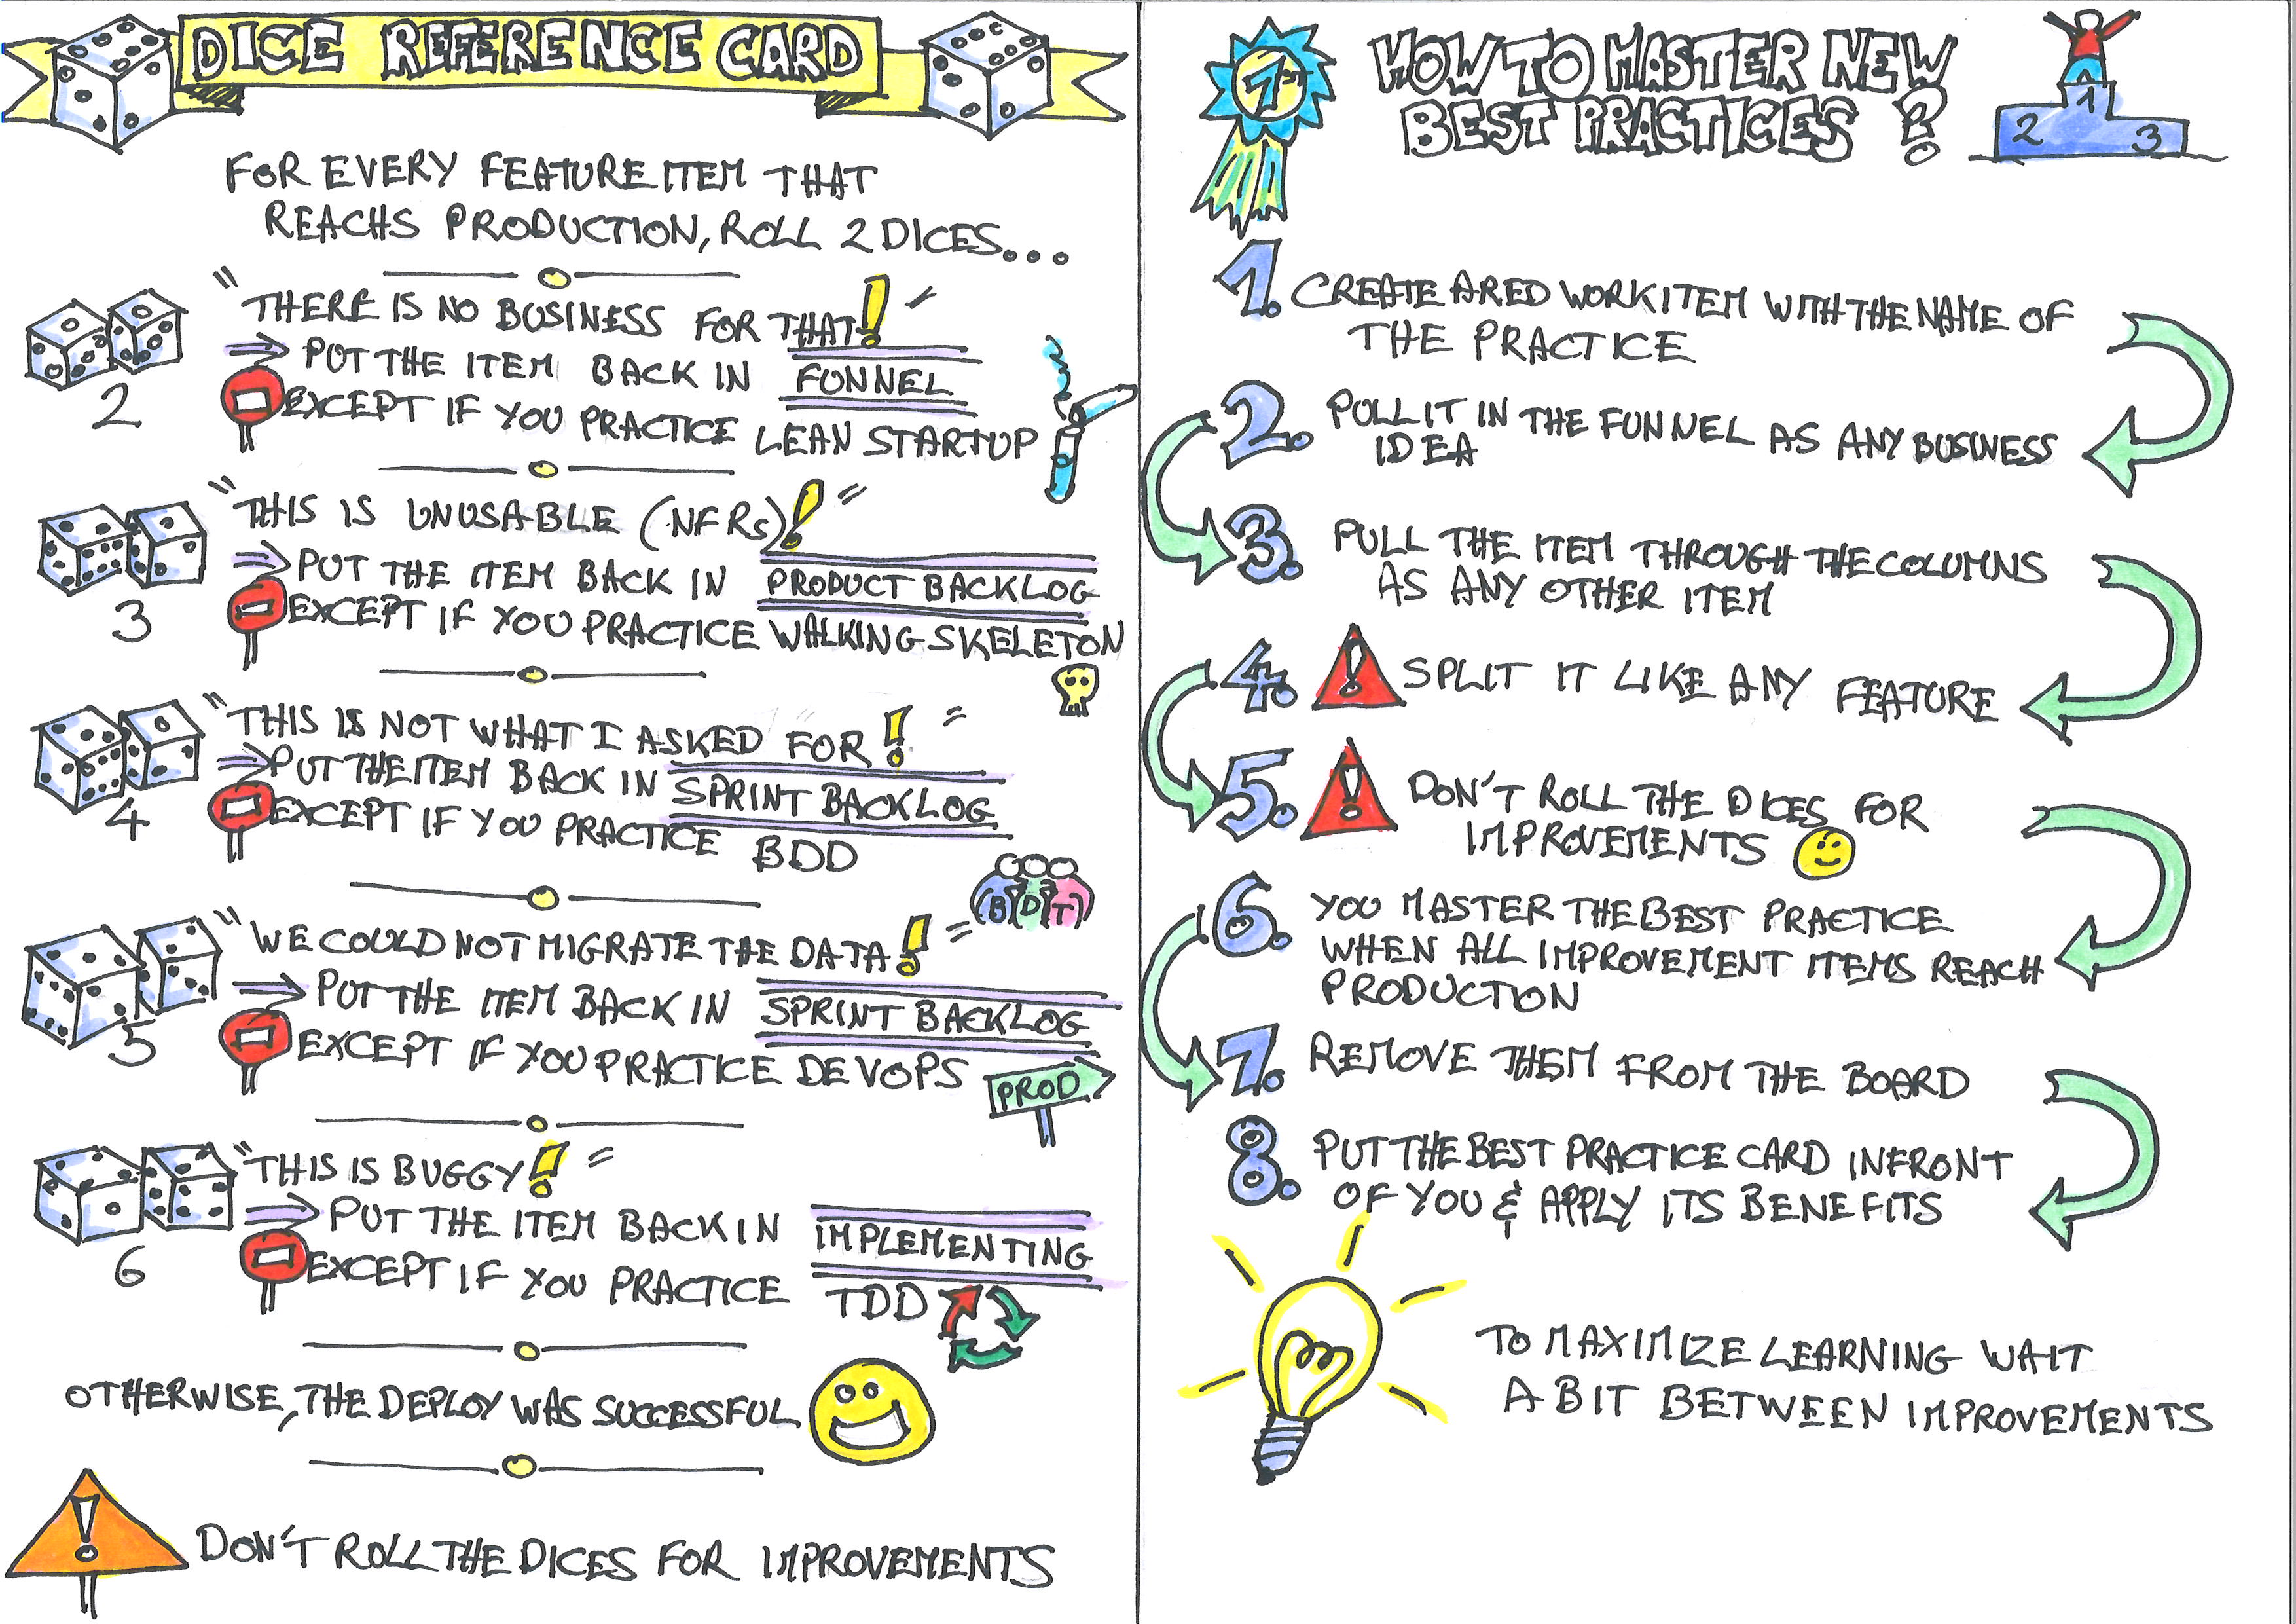 DICE REFERENCE CARD
FOR EVERY FEATURE ITEM THAT
REACHS PRODUCTION, ROLL 2 DICES...
2
"THERE IS NO BUSINESS FOR THAT!"
⇒ PUT THE ITEM BACK IN FUNNEL
EXCEPT IF YOU PRACTICE LEAN STARTUP
3
"THIS IS UNUSABLE (NFRs)!"
⇒ PUT THE ITEM BACK IN PRODUCT BACKLOG
EXCEPT IF YOU PRACTICE WALKING SKELETON
4
"THIS IS NOT WHAT I ASKED FOR!"
⇒ PUT THE ITEM BACK IN SPRINT BACKLOG
EXCEPT IF YOU PRACTICE BDD
B D T
5
"WE COULD NOT MIGRATE THE DATA!"
⇒ PUT THE ITEM BACK IN SPRINT BACKLOG
EXCEPT IF YOU PRACTICE DEVOPS
PROD
6
"THIS IS BUGGY!"
⇒ PUT THE ITEM BACK IN IMPLEMENTING
EXCEPT IF YOU PRACTICE TDD
OTHERWISE, THE DEPLOY WAS SUCCESSFUL
! DON'T ROLL THE DICES FOR IMPROVEMENTS
HOW TO MASTER NEW
BEST PRACTICES?
1
2
3
1. CREATE A RED WORK ITEM WITH THE NAME OF
THE PRACTICE
2. PULL IT IN THE FUNNEL AS ANY BUSINESS
IDEA
3. PULL THE ITEM THROUGH THE COLUMNS
AS ANY OTHER ITEM
4. ! SPLIT IT LIKE ANY FEATURE
5. ! DON'T ROLL THE DICES FOR
IMPROVEMENTS
6. YOU MASTER THE BEST PRACTICE
WHEN ALL IMPROVEMENT ITEMS REACH
PRODUCTION
7. REMOVE THEM FROM THE BOARD
8. PUT THE BEST PRACTICE CARD INFRONT
OF YOU & APPLY ITS BENEFITS
TO MAXIMIZE LEARNING WAIT
A BIT BETWEEN IMPROVEMENTS